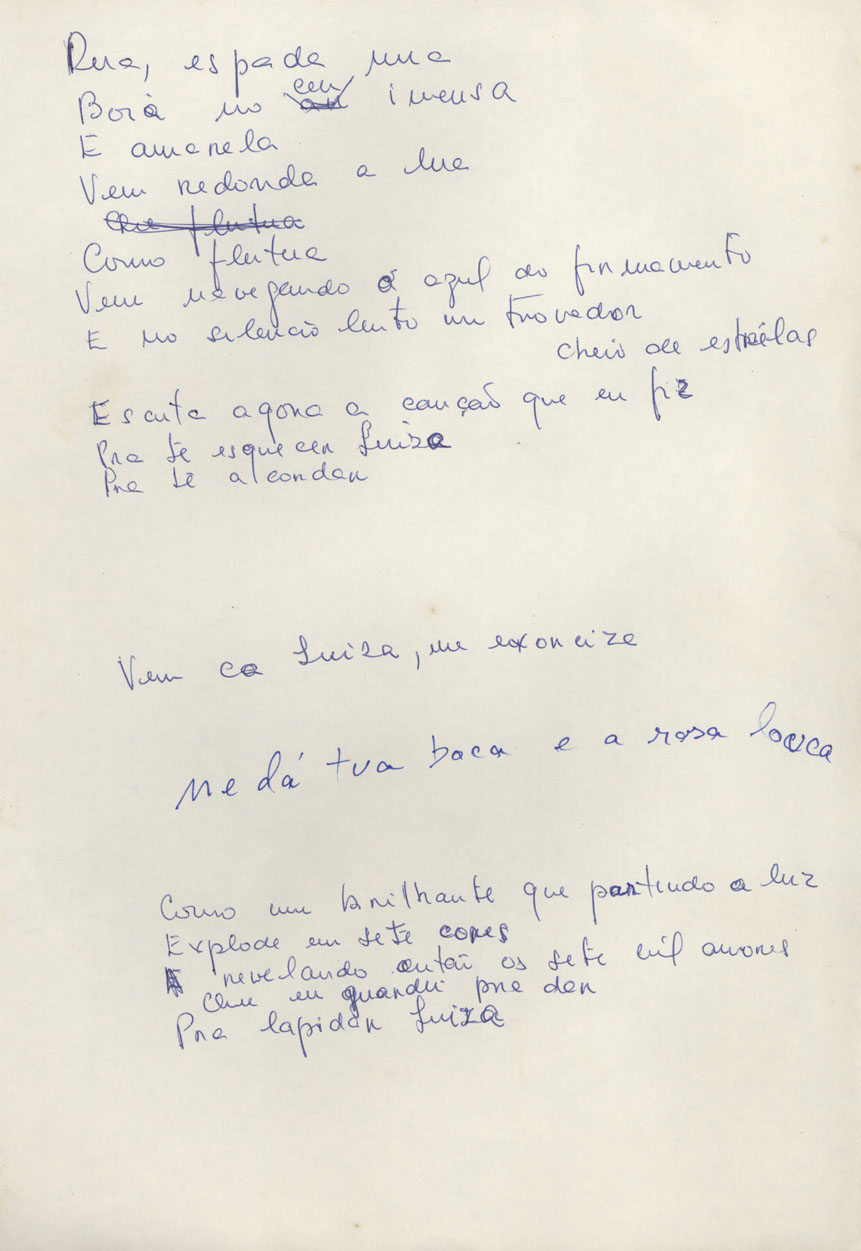 Rua, espada nua
Boia no céu imensa
E amarela
Vem redonda a lua
Que flutua
Como flutua
Vem navegando o azul do firmamento
E no silencio lento um trovador
cheio de estrelas
Escuta agora a canção que eu fiz
Pra te esquecer Luiza
Pra te acordar
Vem cá Luiza, me exorcize
Me dá tua boca e a rosa louca
Como um brilhante que partindo a luz
Explode em sete cores
revelando então os sete mil amores
Que eu guardei pra dar
Pra lapidar Luiza